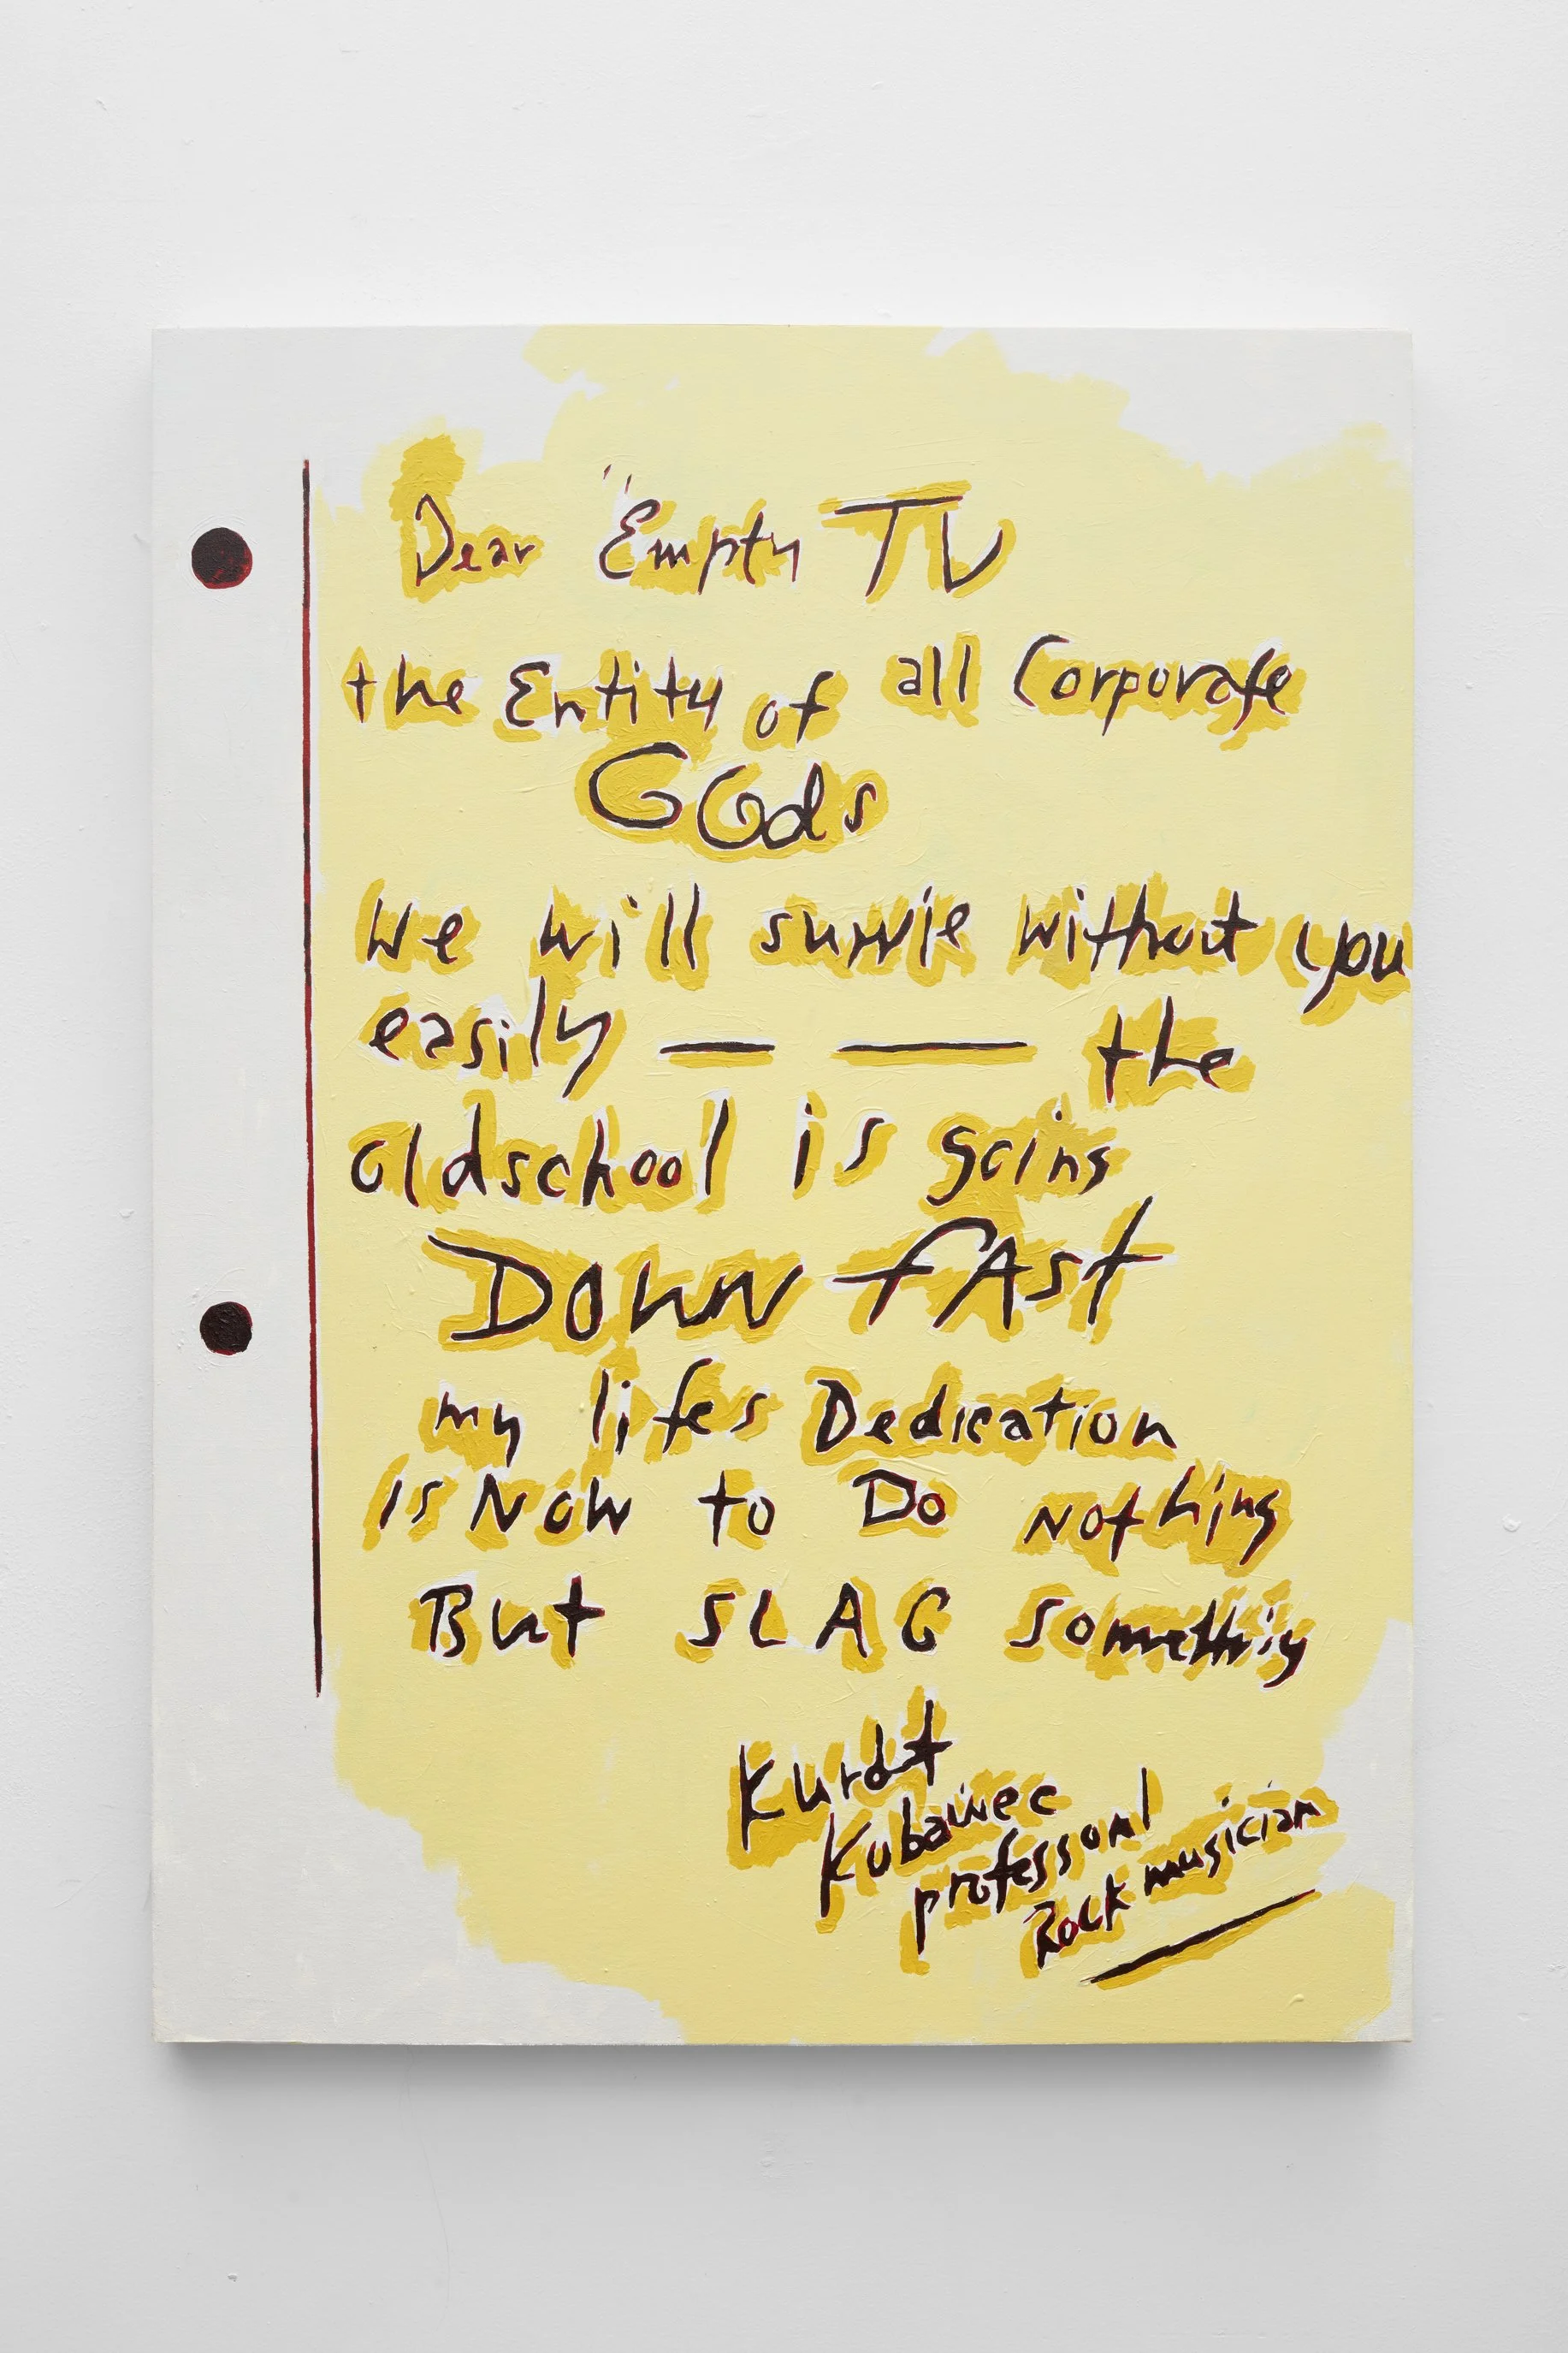 Dear "Empty TV
the Entity of all Corporate
GGods
We will survvie without you
easily — — the
oldschool is going
DOWN fAst
my lifes Dedication
is Now to Do nothing
But SLAG something
Kurdt
Kobainec
professonal
Rock musician